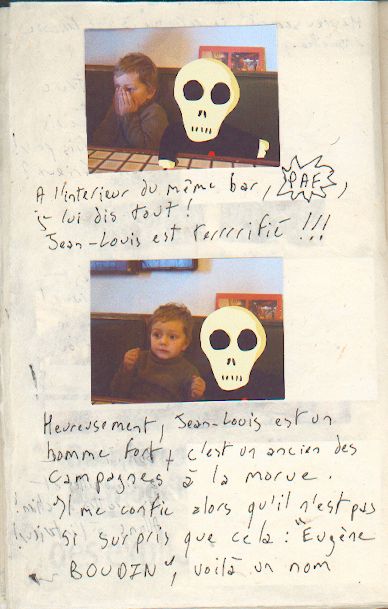 A l'interieur du même bar, PAF,
je lui dis tout!
Jean-Louis est terrrrifié !!!
Heureusement, Jean-Louis est un
homme fort, c'est un ancien des
campagnes à la morue.
Il me confie alors qu'il n'est pas
si surpris que cela : "Eugène
BOUDIN", voilà un nom